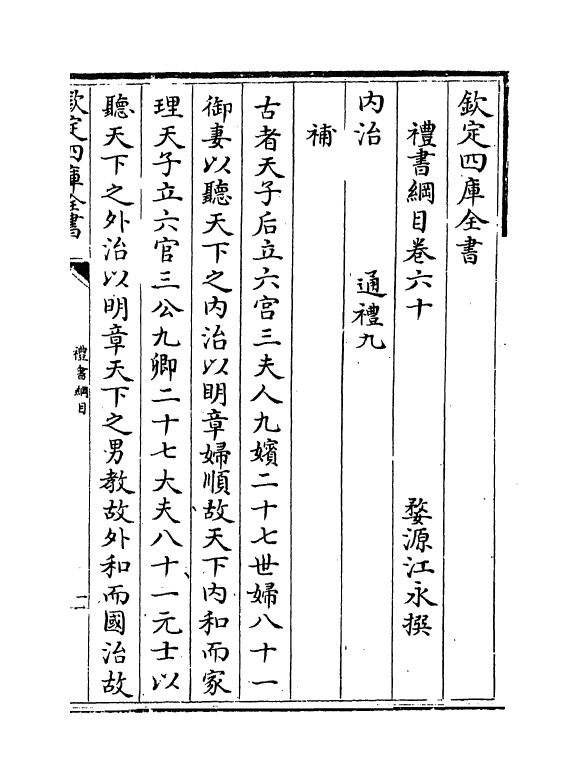 欽定四庫全書
禮書綱目卷六十
婺源江永撰
內治
通禮九
補
古者天子后立六宫三夫人九嬪二十七世婦八十一
御妻以聽天下之内治以明章婦順故天下内和而家
理天子立六官三公九卿二十七大夫八十一元士以
聽天下之外治以明章天下之男教故外和而國治故
欽定四庫全書
禮書綱目